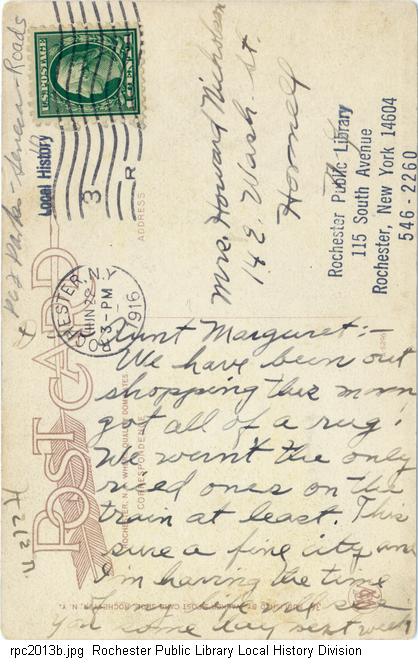 U.S. POSTAGE
1 CENT 1
Local History
3
R
ROCHESTER, N.Y.
JUN 22
3-PM
1916
ADDRESS
Mrs. Howard Nicholson
14 E. Wash. St.
Hornell
Rochester Public Library
115 South Avenue
Rochester, New York 14604
546-2260
POST CARD
CORRESPONDENCE
Aunt Margaret:-
We have been out
shopping this morn
got all of a rug!
We warn't the only
rued ones on the
train at least. This
sure a fine city and
I'm having the time
you come day next week
rpc2013b.jpg Rochester Public Library Local History Division